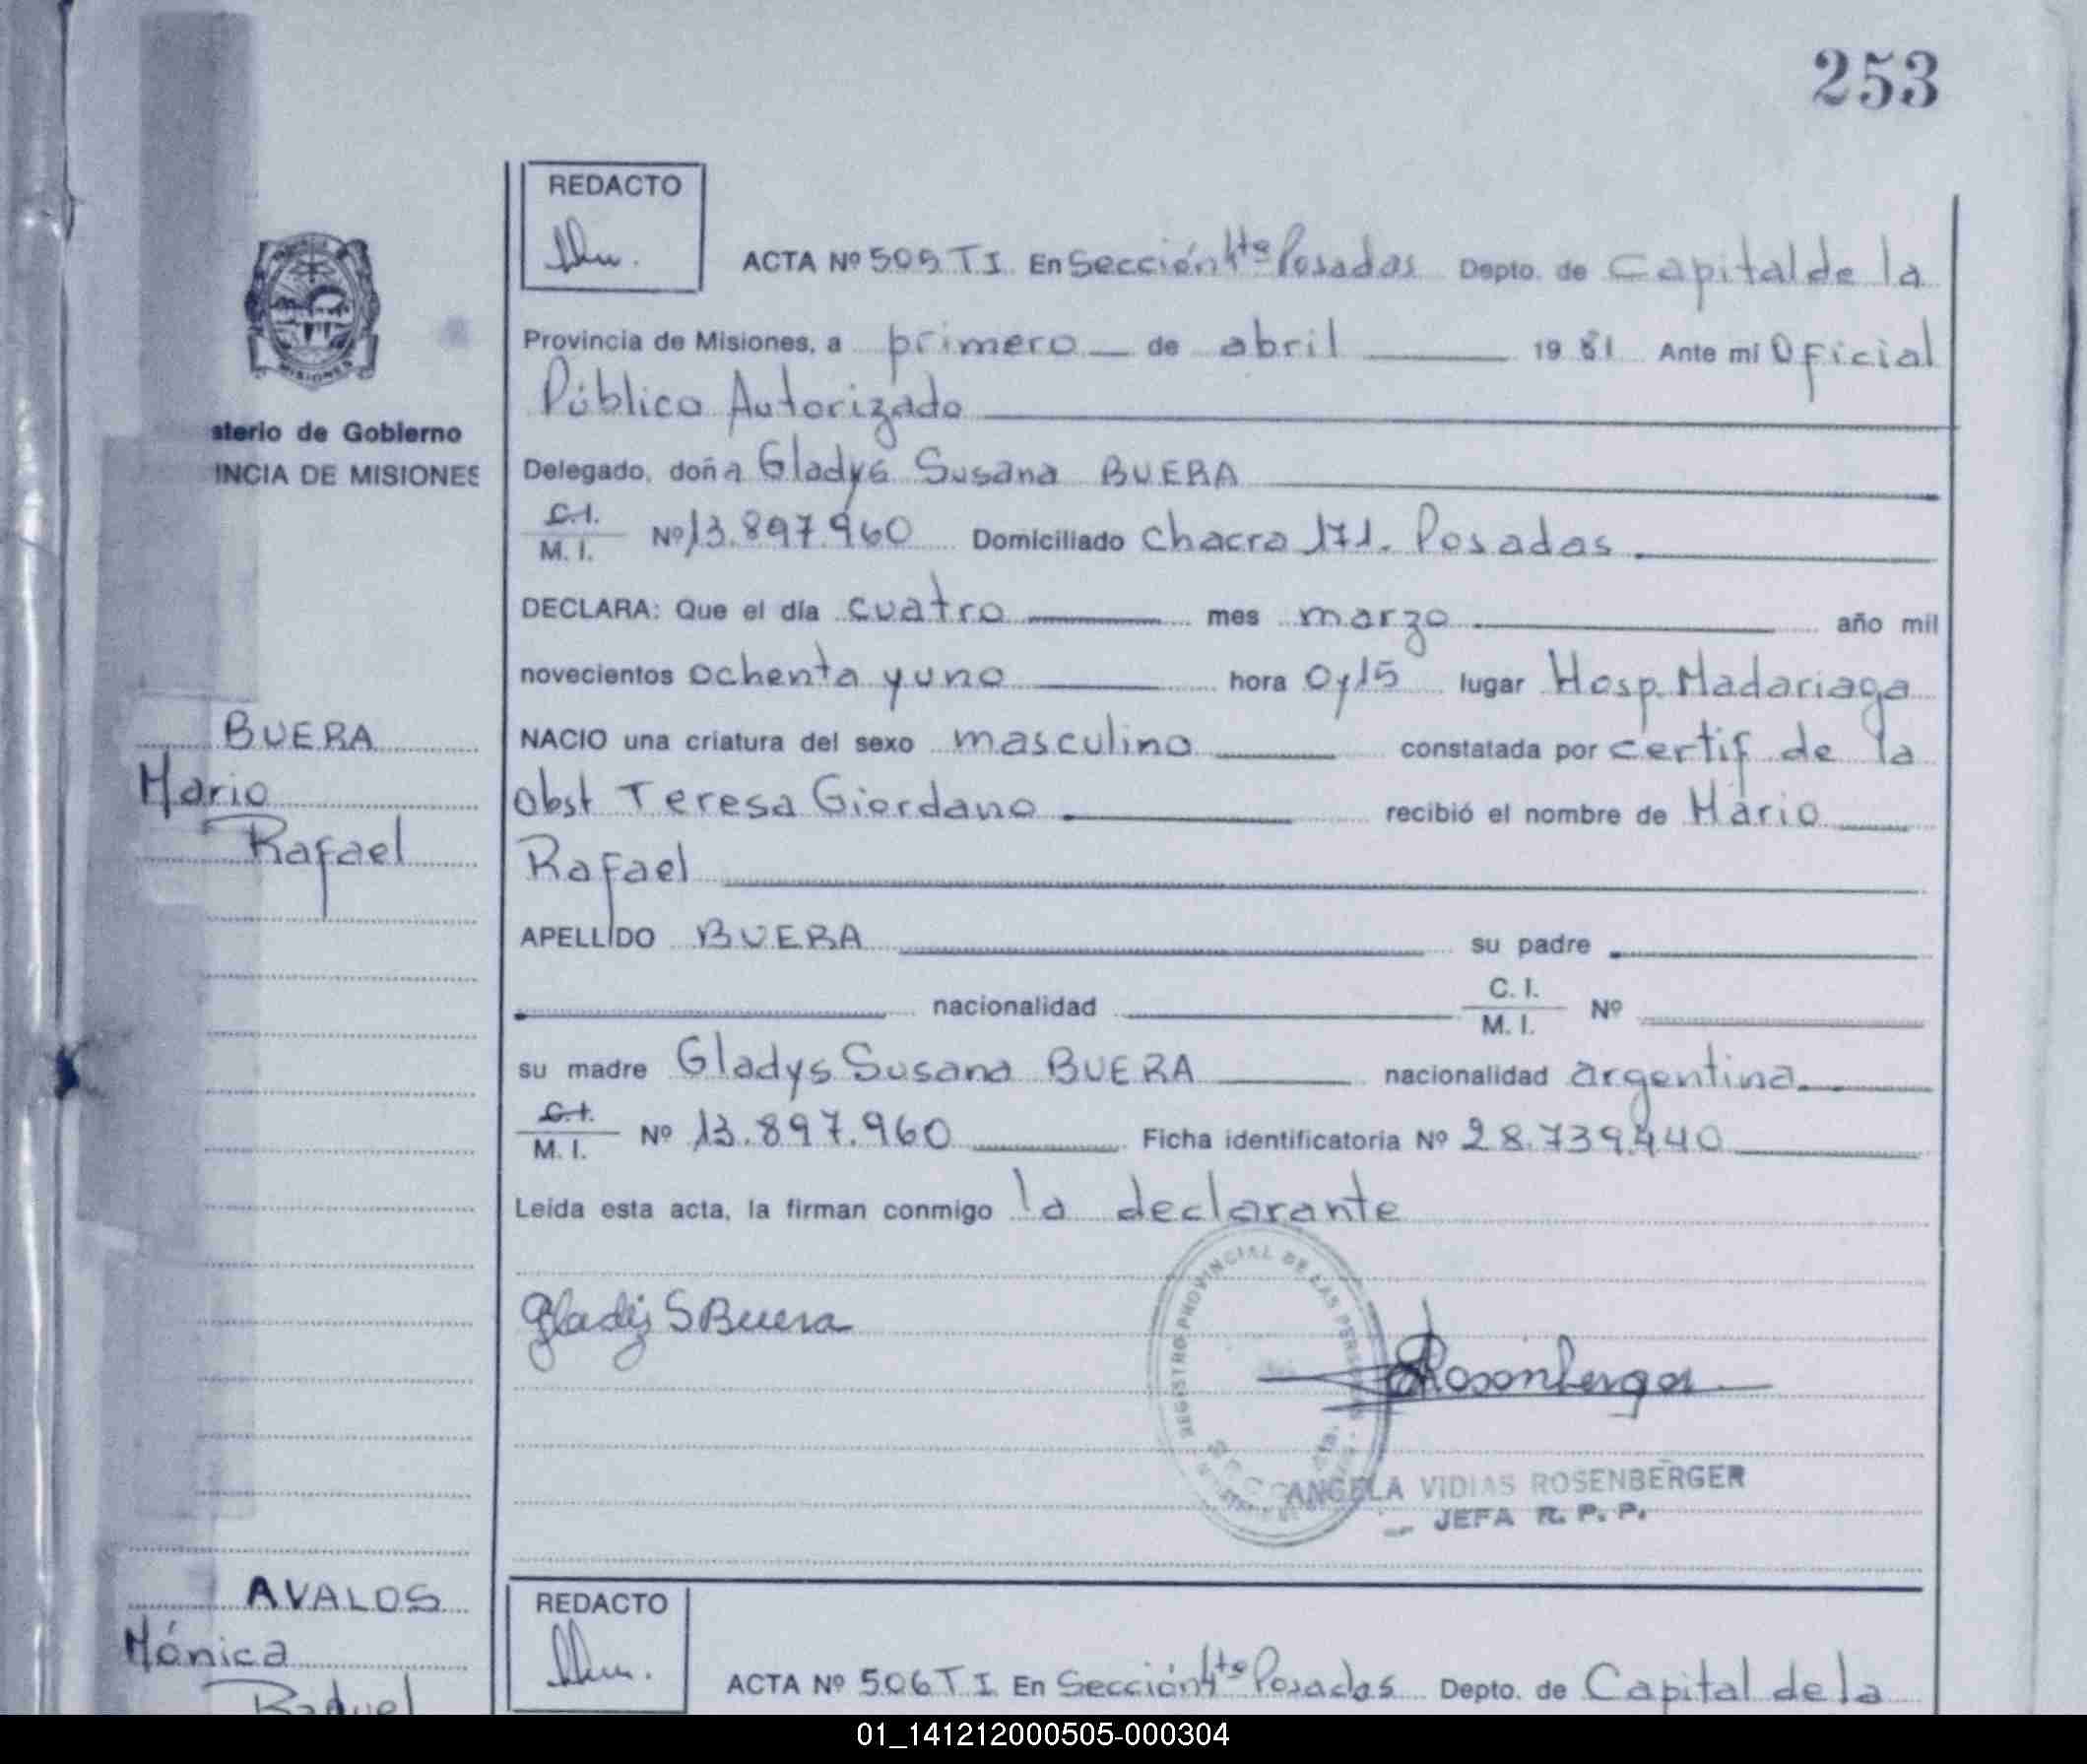 253
REDACTO
ACTA Nº 505 T I En Sección 4ta Posadas Depto. de Capital de la
Provincia de Misiones, a primero de abril 1981 Ante mi Oficial
Público Autorizado
sterio de Gobierno
INCIA DE MISIONES
MISIONES
Delegado, doña Gladys Susana BUERA
C.I.
M. I. Nº 13.897.960 Domiciliado Chacra 171. Posadas
DECLARA: Que el día cuatro mes marzo año mil
novecientos ochenta y uno hora 0 y 15 lugar Hosp. Madariaga
BUERA
Mario
Rafael
NACIO una criatura del sexo masculino constatada por certif de la
Obst Teresa Giordano recibió el nombre de Mario
Rafael
APELLIDO BUERA su padre
nacionalidad C. I.
M. I. Nº
su madre Gladys Susana BUERA nacionalidad argentina.
C.I.
M. I. Nº 13.897.960 Ficha identificatoria Nº 28.739.440
Leída esta acta, la firman conmigo la declarante
REGISTRO PROVINCIAL DE LAS PERSONAS
Gladys S Buera
Rosenberger
ANGELA VIDIAS ROSENBERGER
JEFA R. P. P.
AVALOS
Mónica
Raquel
REDACTO
ACTA Nº 506 T I En Sección 4ta Posadas Depto. de Capital de la
01_141212000505-000304